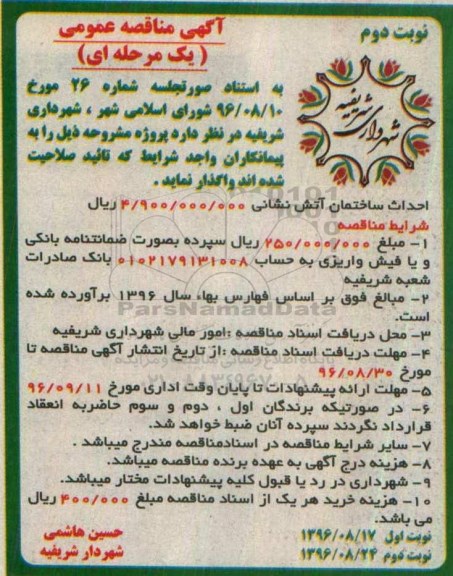 نوبت دوم
آگهی مناقصه عمومی
( یک مرحله ای)
شهرداری شریفیه
به استناد صورتجلسه شماره ۲۶ مورخ
۹۶/۰۸/۱۰ شورای اسلامی شهر ، شهرداری
شریفیه در نظر دارد پروژه مشروحه ذیل را به
پیمانکاران واجد شرایط که تائید صلاحیت
شده اند واگذار نماید .
احداث ساختمان آتش نشانی ۴/۹۰۰/۰۰۰/۰۰۰ ریال
شرایط مناقصه
۱- مبلغ ۲۵۰/۰۰۰/۰۰۰ ریال سپرده بصورت ضمانتنامه بانکی
و یا فیش واریزی به حساب ۰۱۰۲۱۷۹۱۳۱۰۰۸ بانک صادرات
شعبه شریفیه
۲- مبالغ فوق بر اساس فهارس بهاء سال ۱۳۹۶ برآورده شده
است.
۳- محل دریافت اسناد مناقصه :امور مالی شهرداری شریفیه
۴- مهلت دریافت اسناد مناقصه :از تاریخ انتشار آگهی مناقصه تا
مورخ ۹۶/۰۸/۳۰
۵- مهلت ارائه پیشنهادات تا پایان وقت اداری مورخ ۹۶/۰۹/۱۱
۶- در صورتیکه برندگان اول ، دوم و سوم حاضربه انعقاد
قرارداد نگردند سپرده آنان ضبط خواهد شد.
۷- سایر شرایط مناقصه در اسنادمناقصه مندرج میباشد .
۸- هزینه درج آگهی به عهده برنده مناقصه میباشد.
۹- شهرداری در رد یا قبول کلیه پیشنهادات مختار میباشد.
۱۰- هزینه خرید هر یک از اسناد مناقصه مبلغ ۴۰۰/۰۰۰ ریال
می باشد.
نوبت اول ۱۳۹۶/۰۸/۱۷
نوبت دوم ۱۳۹۶/۰۸/۲۴
حسین هاشمی
شهردار شریفیه
ParsNamadData